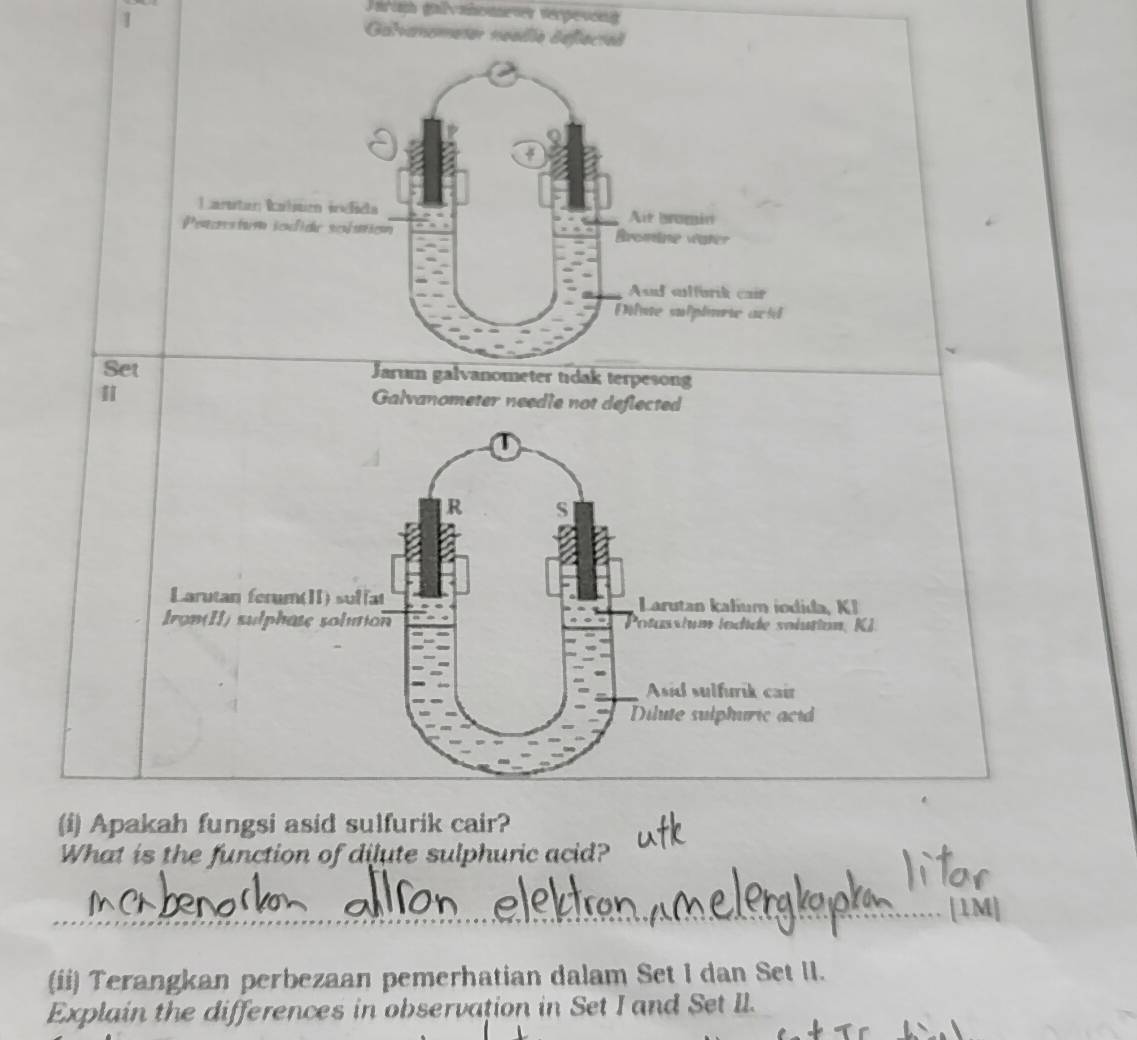 I
Jarum galvanometer terpesong
Galvanometer needle deflected
P
Q
-
+
Larutan kalium iodida
Potassium iodide solution
Air bromin
Bromine water
Asid sulfurik cair
Dilute sulphuric acid
Set
II
Jarum galvanometer tidak terpesong
Galvanometer needle not deflected
R
S
Larutan ferum(II) sulfat
Iron(II) sulphate solution
Larutan kalium iodida, KI
Potassium iodide solution, KI
Asid sulfurik cair
Dilute sulphuric acid
(i) Apakah fungsi asid sulfurik cair?
What is the function of dilute sulphuric acid?
utk
menbenarkan aliran elektron, melengkapkan litar
[1M]
(ii) Terangkan perbezaan pemerhatian dalam Set I dan Set II.
Explain the differences in observation in Set I and Set II.